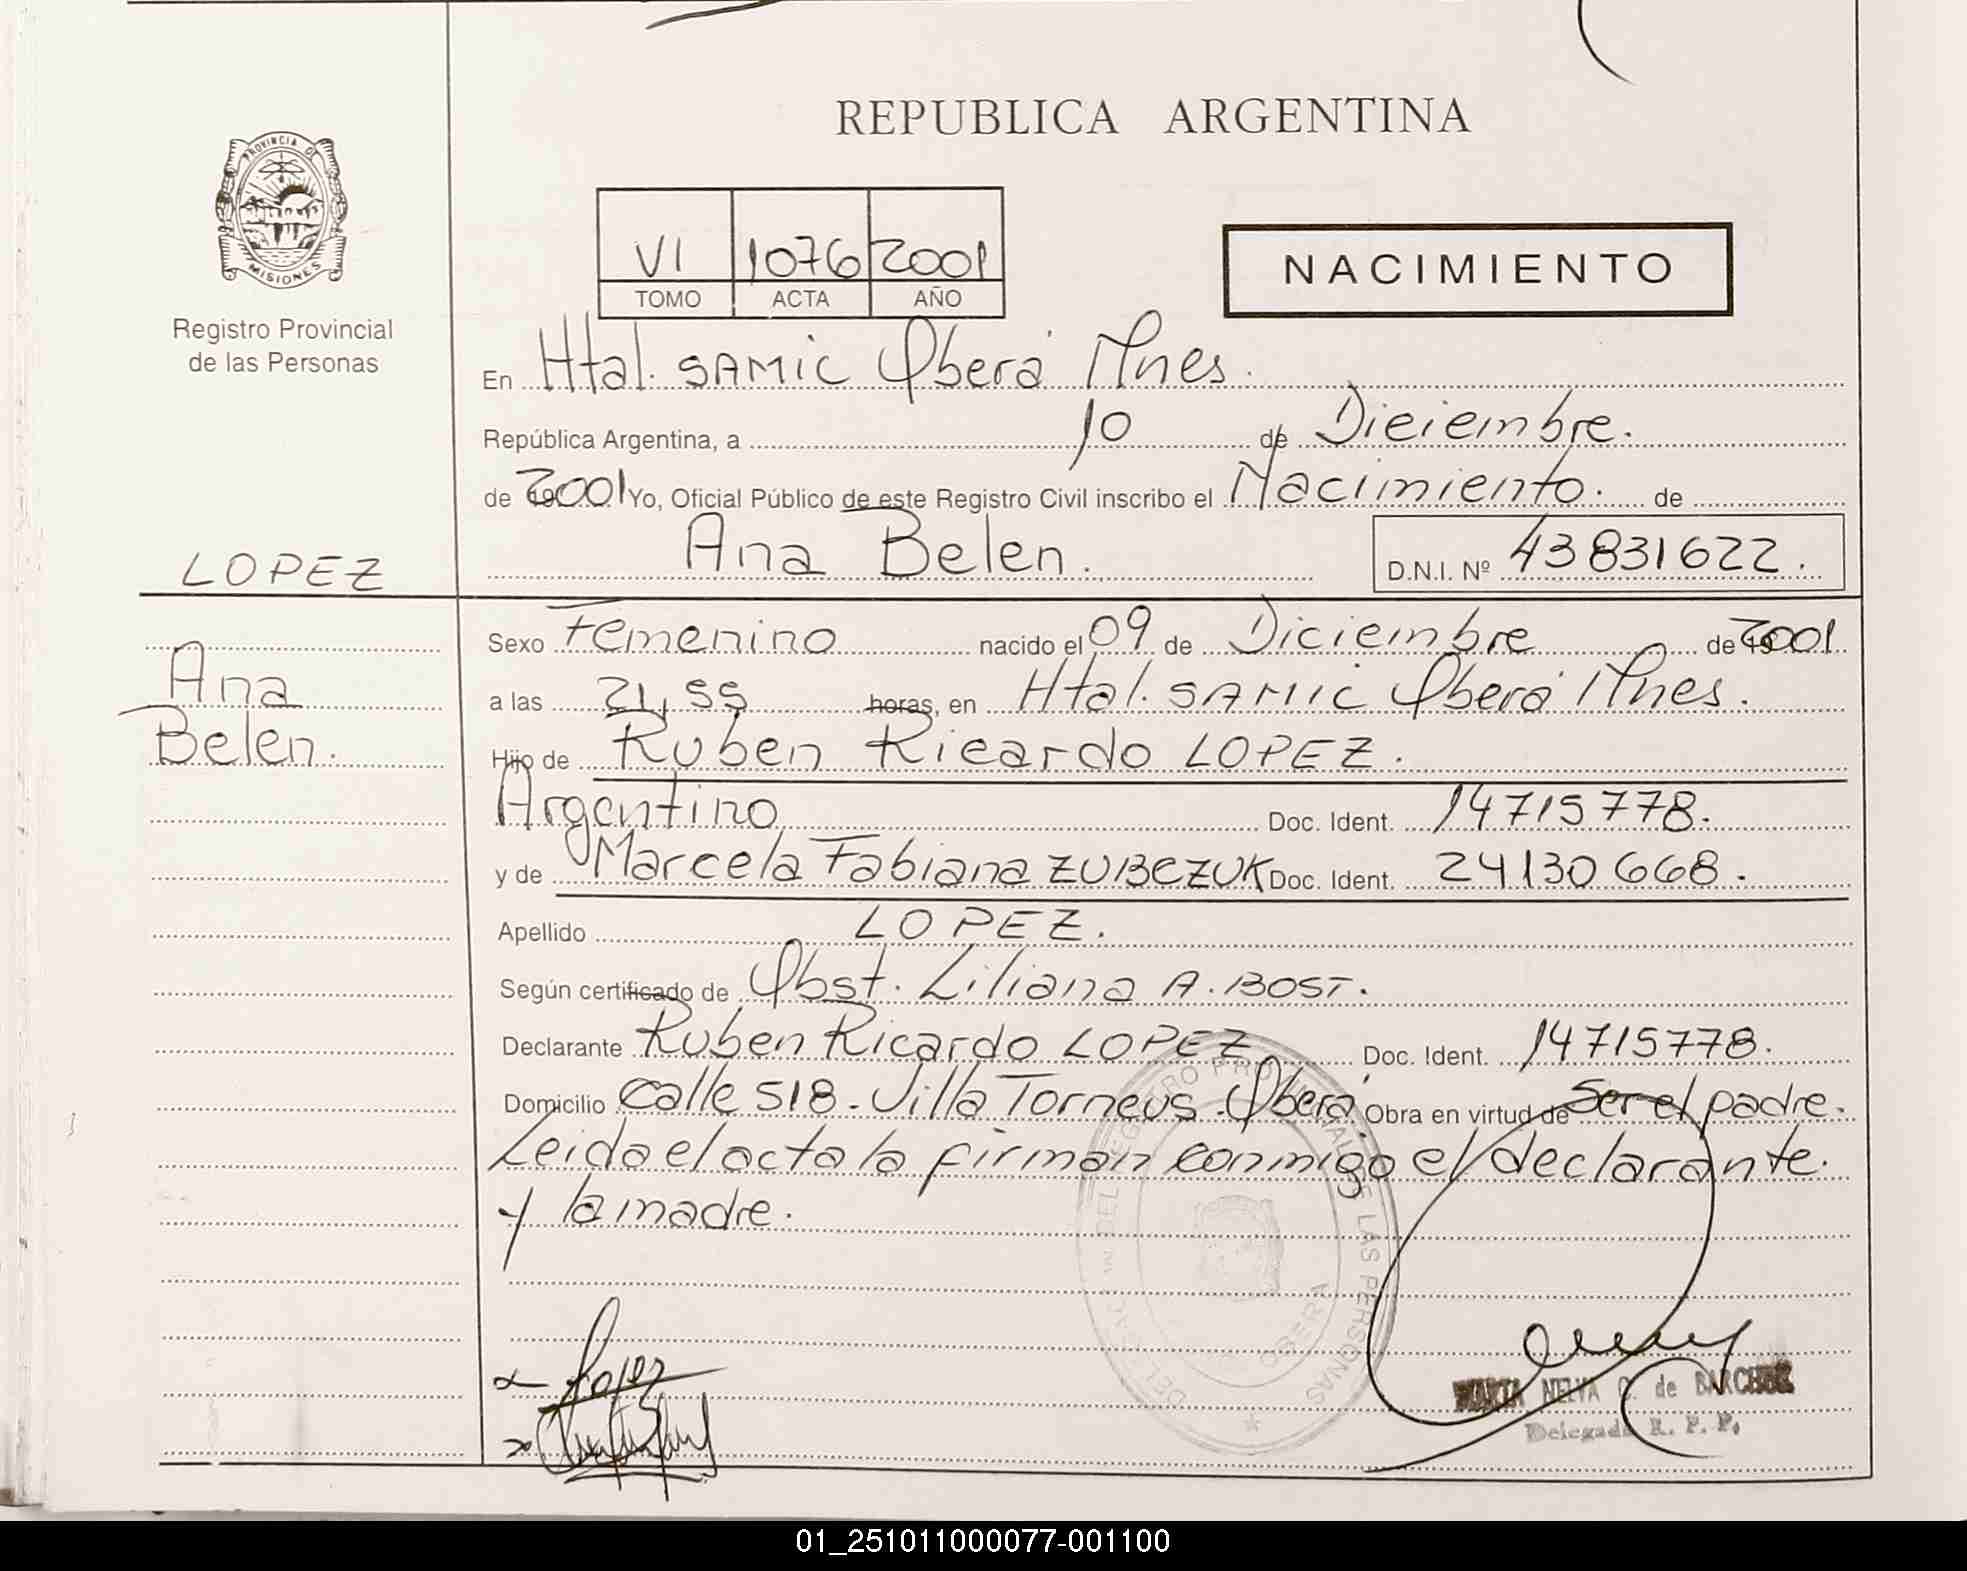 REPUBLICA ARGENTINA
PROVINCIA DE
MISIONES
Registro Provincial
de las Personas
VI 1076 2001
TOMO ACTA AÑO
NACIMIENTO
En Htal. SAMIC Oberá Mnes.
República Argentina, a 10 de Diciembre.
de 2001 Yo, Oficial Público de este Registro Civil inscribo el Nacimiento. de
Ana Belen. D.N.I. Nº 43831622.
LOPEZ
Ana
Belen.
Sexo Femenino nacido el 09 de Diciembre de 2001
a las 21,55 horas, en Htal. SAMIC Oberá Mnes.
Hijo de Ruben Ricardo LOPEZ.
Argentino Doc. Ident. 14715778.
y de Marcela Fabiana ZUBCZUK Doc. Ident. 24130668.
Apellido LOPEZ.
Según certificado de Obst. Liliana A. BOST.
Declarante Ruben Ricardo LOPEZ Doc. Ident. 14715778.
Domicilio Calle 518. Villa Torneus. Oberá Obra en virtud de Ser el padre.
Leida el acta la firman conmigo el declarante.
y la madre.
LAS PERSONAS
OBERA
Lopez
MARTA NELVA C. de
Delegada R. P. P.
01_251011000077-001100